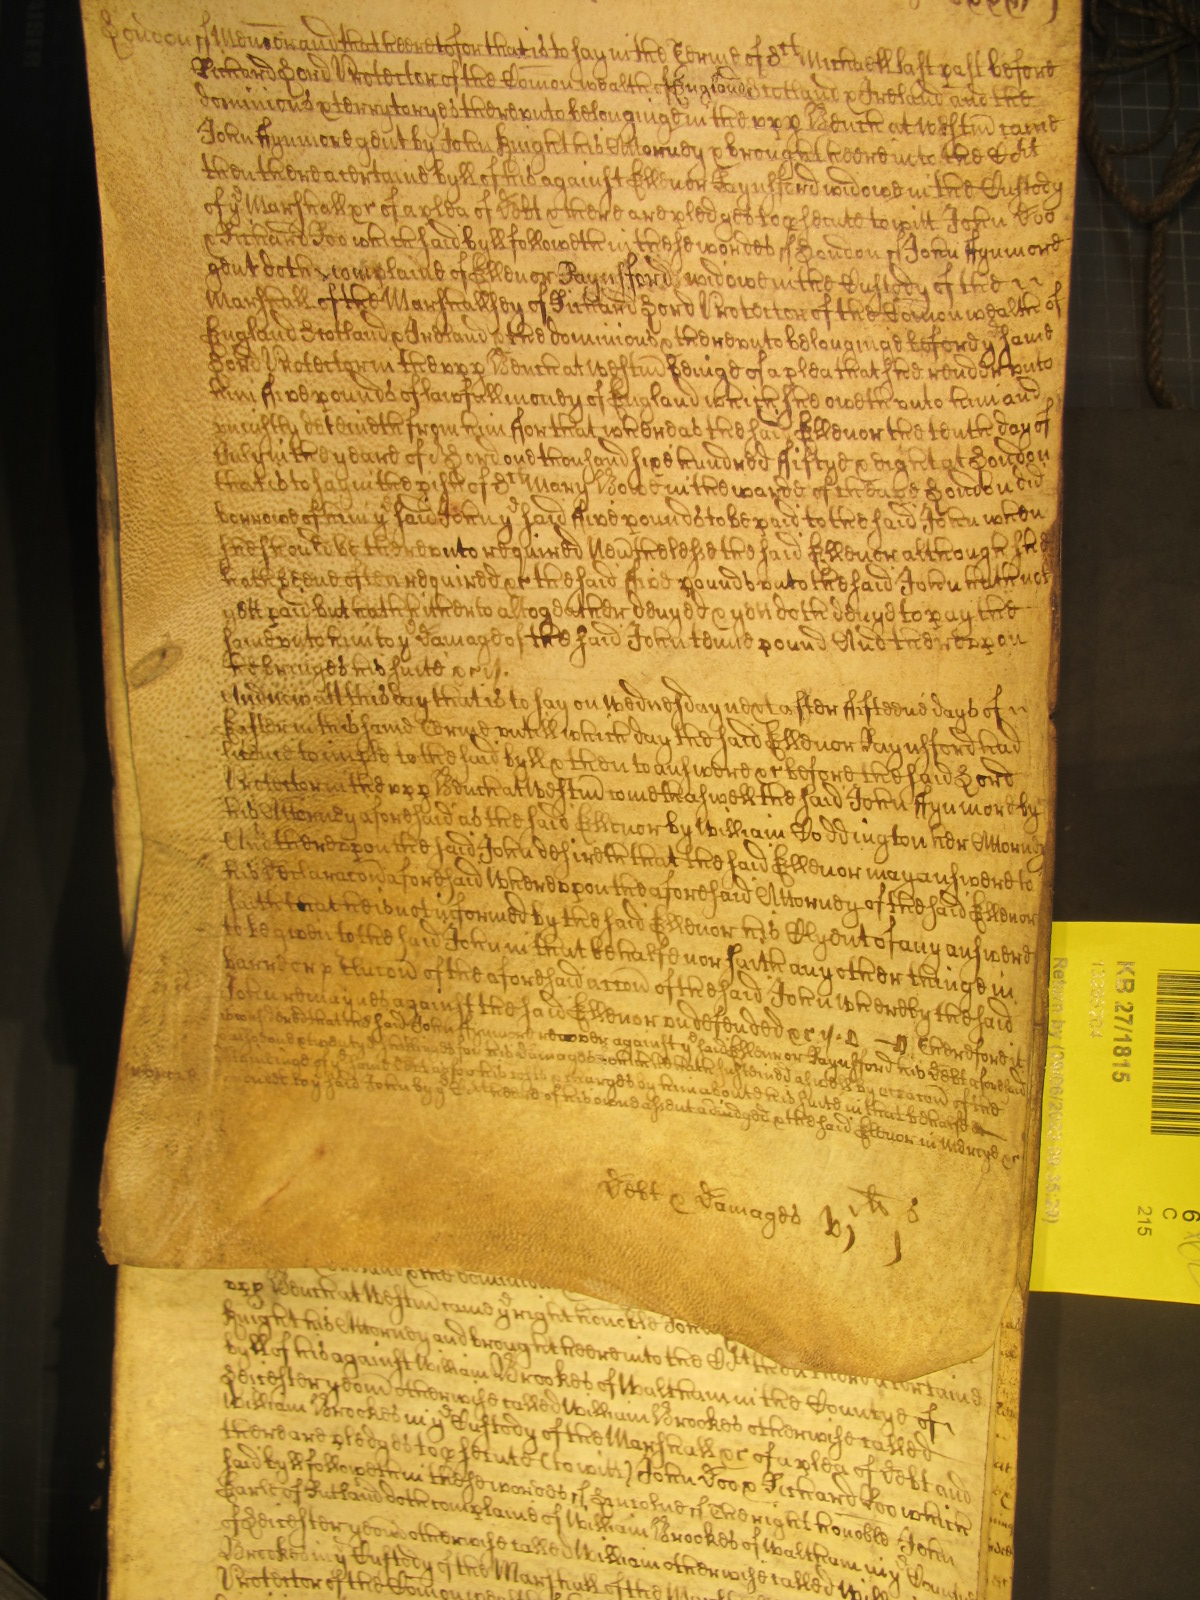 London ss Memorand that heeretofore that is to say in the Terme of St Michaell last past before
Richard Lord Protector of the Comon wealth of England Scotland & Ireland and the
dominions & terrytoryes thereunto belonginge in the upp Bench at Westm came
John Fynmore gent by John Knight his Attorney & brought heere into the Cort
then there a certaine byll of his against Ellenor Raynsford widowe in the Custody
of ye Marshall &c of a plea of Debt & there are pledges to psecute to witt John Doo
& Richard Roo which said byll followeth in these wordes ss London ss John Fynmore
gent doth complaine of Ellenor Raynsford widowe in the Custody of the
Marshall of the Marshallsey of Richard Lord Protector of the Comon wealth of
England Scotland & Ireland & the dominions thereunto belonginge before ye same
Lord Protector in the upp Bench at Westm beinge of a plea that she render unto
him five pounds of lawfull money of England which she oweth unto him and
uniustly deteineth from him For that whereas the said Ellenor the tenth day of
July in the yeare of or Lord one thousand sixe hundred fiftye & eight at London
that is to say in the pish of St Mary Bowe in the warde of Cheape London did
borrowe of him ye said John ye said five pounds to be paid to the said John when
she should be thereunto required Neverthelesse the said Ellenor although she
hath beene often required &c the said five pounds unto the said John hath not
yett paid but hath hitherto altogeather denyed & yett doth denye to pay the
same unto him to ye damage of the said John tenne pound And thereuppon
he bringes his suite &c
And now att this day that is to say on Wednesday next after fifteene dayes of
Easter in this same Terme untill which day the said Ellenor Raynsford had
licence to imple to the said byll & then to answere &c before the said Lord
Protector in the upp Bench at Westm cometh aswell the said John Fynmore by
his Attorney aforesaid as the said Ellenor by William Doddington her Attorny
And thereuppon the said John desireth that the said Ellenor may answere to
his Declaracon aforesaid Whereuppon the aforesaid Attorney of the said Ellenor
saith that he is not informed by the said Ellenor his Clyent of any answere
to be given to the said John in that behalfe nor saith any other thinge in
barr or pclucon of the aforesaid accon of the said John whereby the said
John remaynes against the said Ellenor undefended &c Therefore it
is considered that the said John Fynmore recover against ye said Ellenor Raynsford his debt aforesaid
and twenty shillings for his damages which he hath susteined aswell by occacon of the
deteininge of ye debt as for his costs & charges by him about his suite in that behalfe
to ye said John by ye Cort heere of his owne assent adiudged & the said Ellenor in Mercye &c
Debt & Damages vjli s
upp Bench at Westm came ye right honoble John
Knight his Attorney and brought heere into the Cort then there a certaine
byll of his against William Brookes of Waltham in the Countye of
Leicester yeom otherwise called William Brookes otherwise called
William Brookes in ye Custody of the Marshall &c of a plea of Debt and
there are pledges to psecute (to witt) John Doo & Richard Roo which
said byll followeth in these wordes ss Lincolne ss The right honoble John
Earle of Rutland doth complaine of William Brookes of Waltham in ye Countye
of Leicester yeom otherwise called William otherwise called Will
Brookes in ye Custody of the Marshall of the
Protector of the Comon wealth
KB 27/1815
Return by (09/06/20
215
C
6